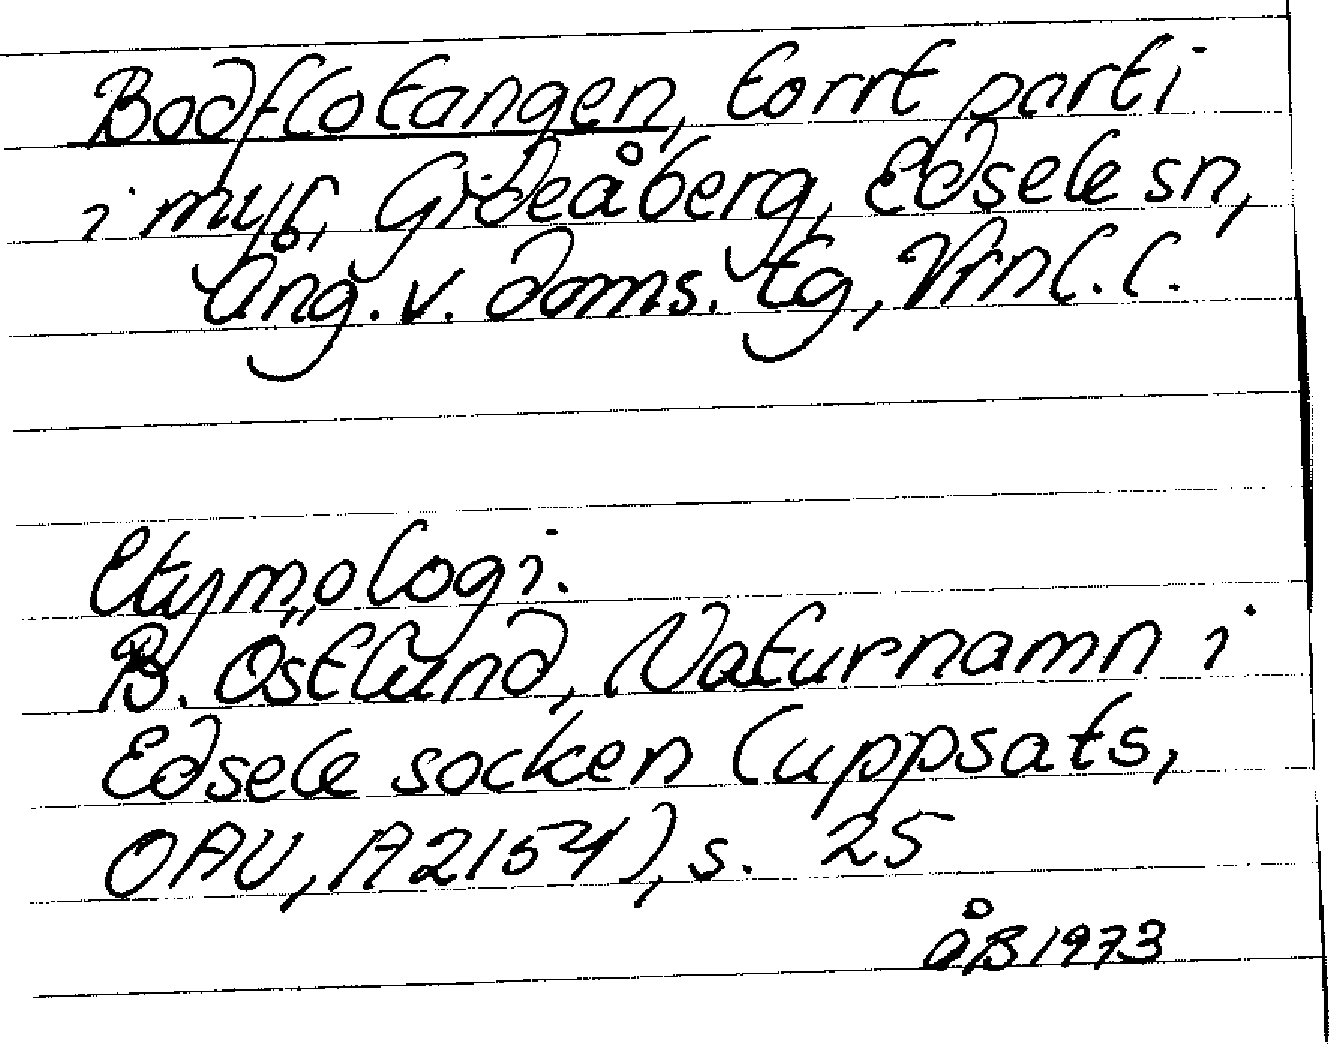 Bodflotangen, torrt parti
i myr, Gideåberg, Edsele sn,
Ång. v. doms. tg, Vrnl. l.
Etymologi.
B. Östlund, Naturnamn i
Edsele socken (uppsats,
OAU, A2154), s. 25
ÅB 1973